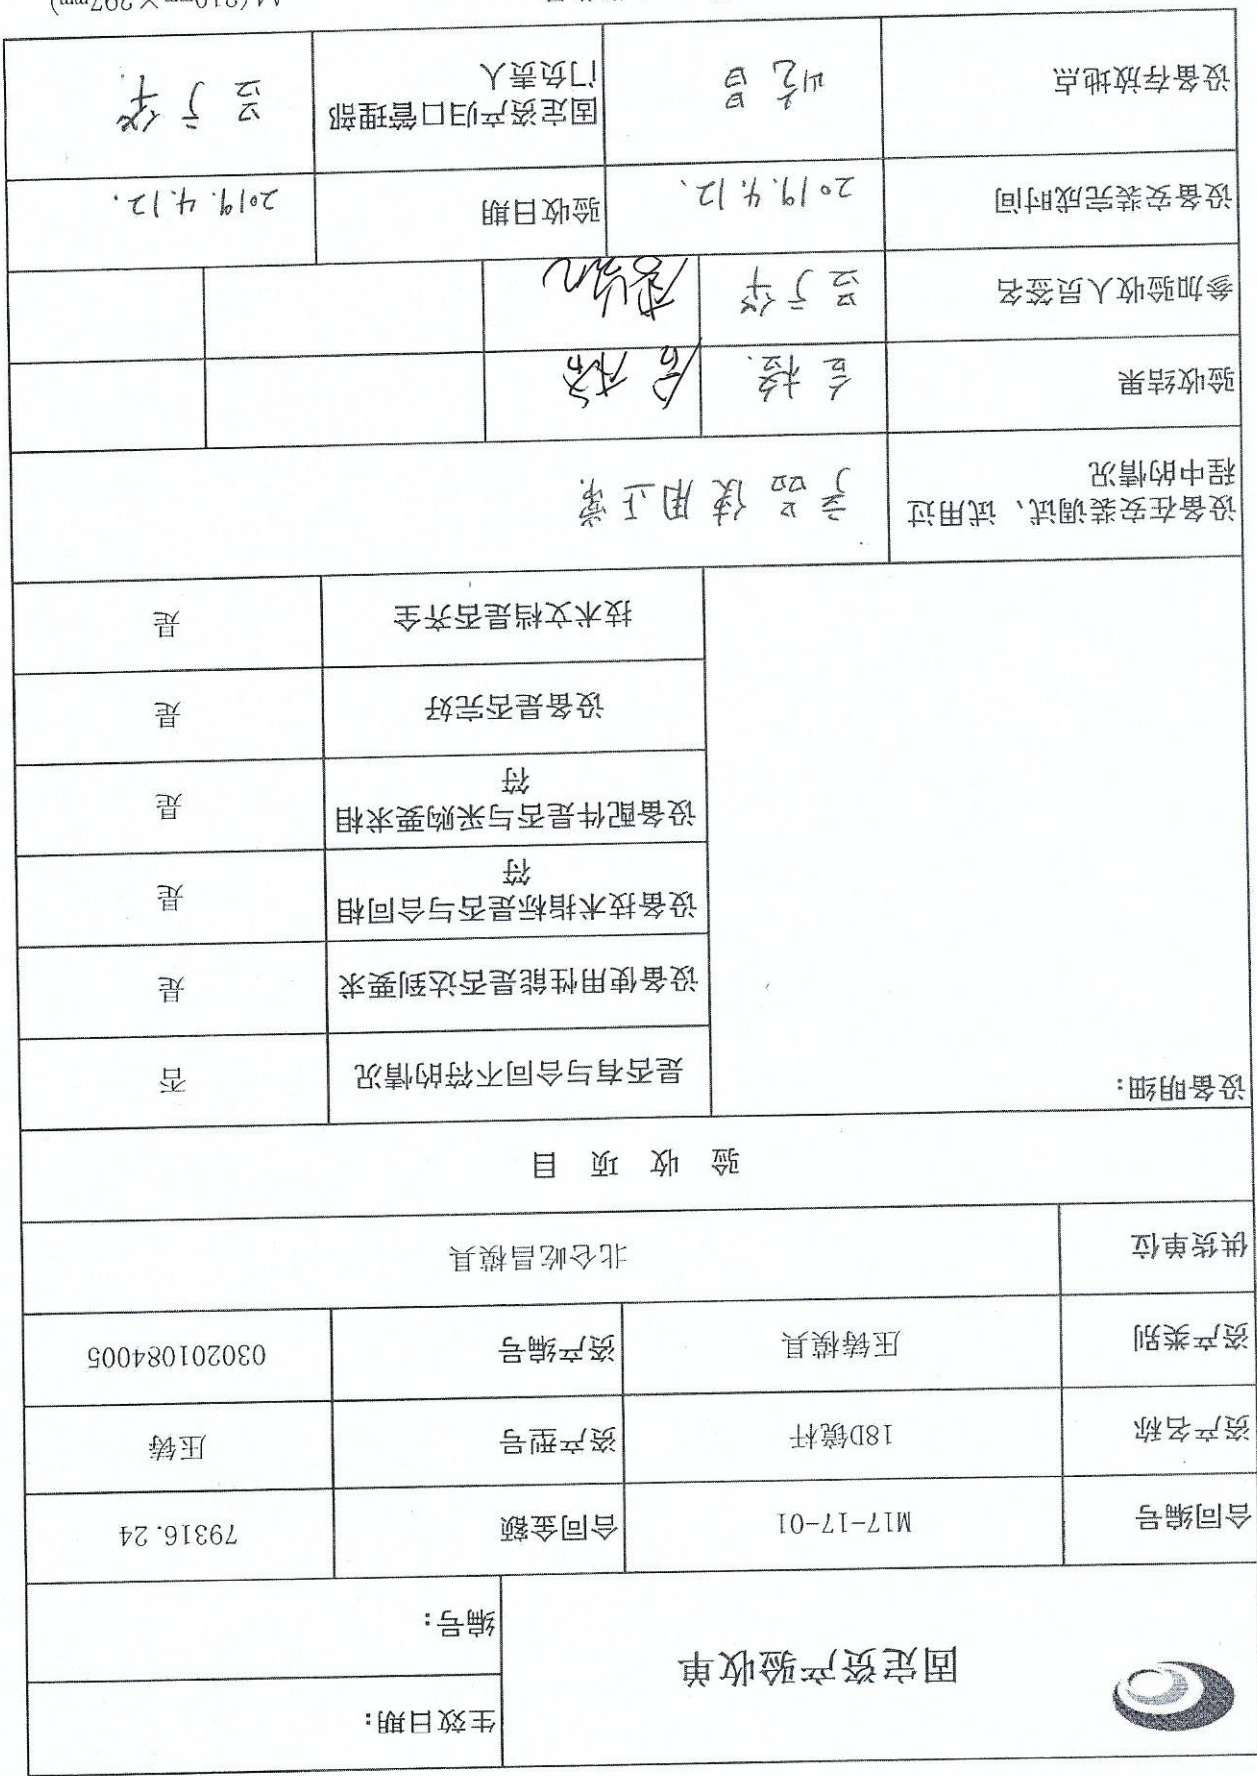 固定资产验收单
生效日期:
编号:
合同编号 M17-17-01 合同金额 79316.24
资产名称 18D镜杆 资产型号 压铸
资产类别 压铸模具 资产编号 030201084005
供货单位 北仑屹昌模具
验 收 项 目
设备明细:
是否有与合同不符的情况 否
设备使用性能是否达到要求 是
设备技术指标是否与合同相
符 是
设备配件是否与采购要求相
符 是
设备是否完好 是
技术文档是否齐全 是
设备在安装调试、试用过
程中的情况 产品使用正常
验收结果 合格 合格
参加验收人员签名
设备安装完成时间 2019.4.12. 验收日期 2019.4.12.
设备存放地点 屹昌 固定资产归口管理部
门负责人
A4(210mm×297mm)